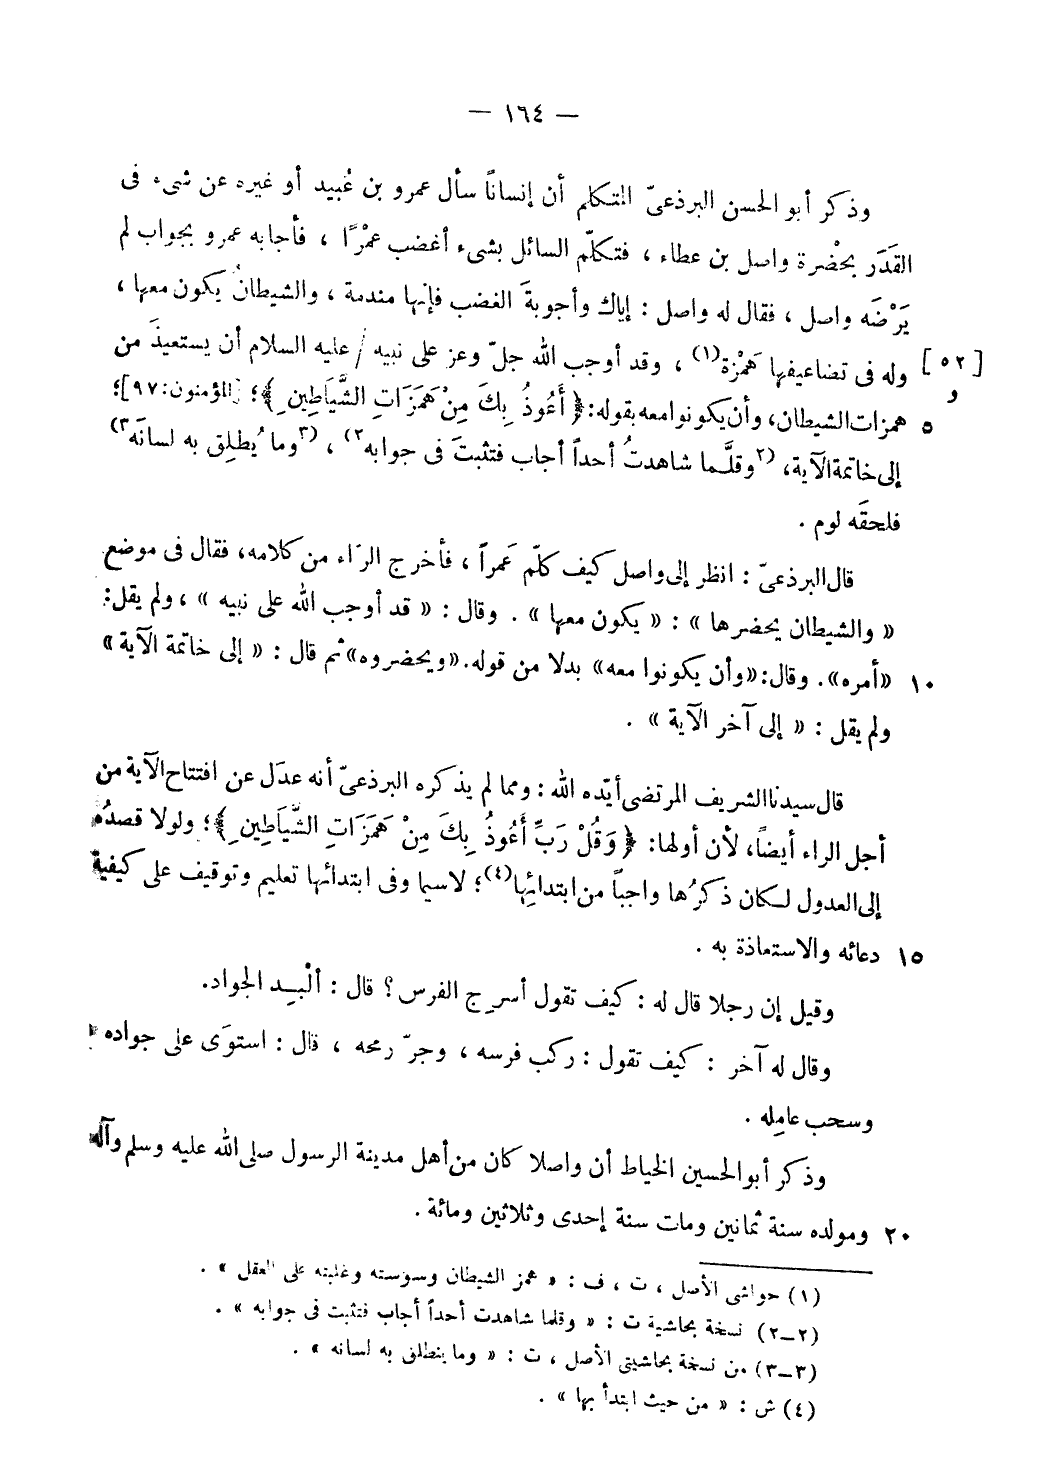 — ١٦٤ —
وذكر أبو الحسن البرذعىّ المتكلم أن إنساناً سأل عمرو بن عُبيد أو غيره عن شىء فى
القَدَر بحضْرة واصل بن عطاء ، فتكلّم السائل بشىء أغضب عمْرًا ، فأجابه عمرو بجواب لم
يَرْضَه واصل ، فقال له واصل : إياك وأجوبةَ الغضب فإنها مندمة ، والشيطانُ يكون معها ،
[٥٢ و] وله فى تضاعيفها هَمْزة(١) ، وقد أوجب الله جلّ وعز على نبيه / عليه السلام أن يستعيذَ من
٥ همزات الشيطان، وأن يكونوا معه بقوله: ﴿ أَعُوذُ بِكَ مِنْ هَمَزَاتِ الشَّيَاطِينِ ﴾؛ [المؤمنون: ٩٧]؛
إلى خاتمة الآية، (٢وقلَّما شاهدتُ أحداً أجاب فتثبتَ فى جوابه٢) ، (٣وما يُطلِق به لسانَه٣)
فلحقَه لوم .
قال البرذعىّ : انظر إلى واصل كيف كلّم عَمراً ، فأخرج الرّاء من كلامه، فقال فى موضع
« والشيطان يحضرها » : « يكون معها » . وقال : « قد أوجب الله على نبيه » ، ولم يقل:
١٠ «أمره». وقال: «وأن يكونوا معه» بدلا من قوله. «ويحضروه» ثم قال : « إلى خاتمة الآية »
ولم يقل : « إلى آخر الآية » .
قال سيدنا الشريف المرتضى أيّده الله : ومما لم يذكره البرذعىّ أنه عدَل عن افتتاح الآية من
أجل الراء أيضاً، لأن أولها: ﴿ وَقُلْ رَبِّ أَعُوذُ بِكَ مِنْ هَمَزَاتِ الشَّيَاطِينِ ﴾؛ ولولا قصدُه
إلى العدول لكان ذكرُها واجباً من ابتدائِها(٤)؛ لاسيما وفى ابتدائها تعليم وتوقيف على كيفية
١٥ دعائه والاستعاذة به .
وقيل إن رجلا قال له : كيف تقول أسرِج الفرس؟ قال : ألْبِد الجواد.
وقال له آخر : كيف تقول : ركب فرسه ، وجرّ رمحه ، قال : استوَى على جواده
وسحب عامِله .
وذكر أبو الحسين الخياط أن واصلا كان من أهل مدينة الرسول صلى الله عليه وسلم وآله
٢٠ ومولده سنة ثمانين ومات سنة إحدى وثلاثين ومائة .
(١) حواشى الأصل ، ت ، ف : « همز الشيطان وسوسته وغلبته على العقل » .
(٢-٢) نسخة بحاشية ت : « وقلما شاهدت أحداً أجاب فتثبت فى جوابه » .
(٣-٣) من نسخة بحاشيتى الأصل ، ت : « وما ينطلق به لسانه » .
(٤) ش : « من حيث ابتدأ بها » .